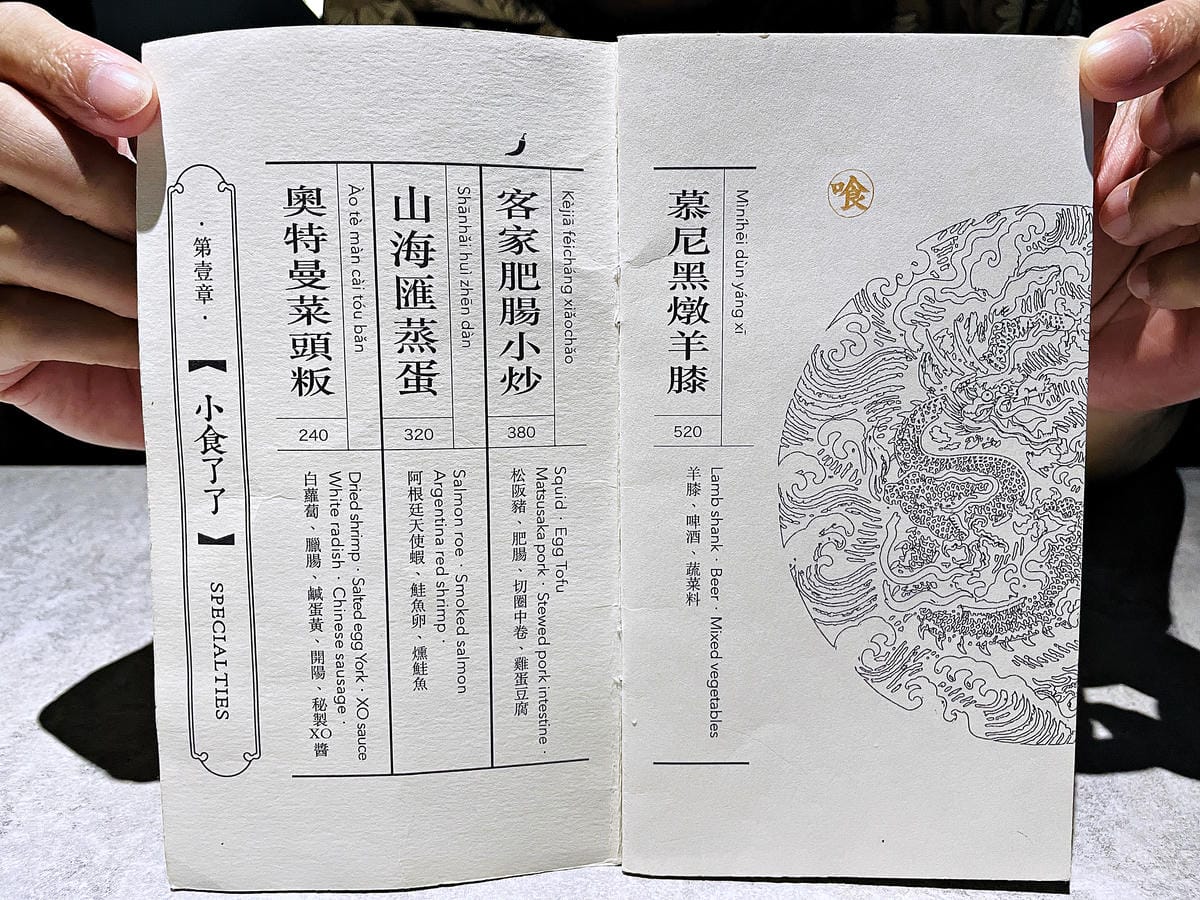 喰
Mìníhēi dùn yáng xī
慕尼黑燉羊膝
520
Lamb shank · Beer · Mixed vegetables
羊膝、啤酒、蔬菜料
Kèjiā féicháng xiǎochǎo
客家肥腸小炒
380
Squid · Egg Tofu
Matsusaka pork · Stewed pork intestine ·
松阪豬、肥腸、切圈中卷、雞蛋豆腐
Shānhǎi huì zhēn dàn
山海匯蒸蛋
320
Salmon roe · Smoked salmon
Argentina red shrimp ·
阿根廷天使蝦、鮭魚卵、燻鮭魚
Ào tè màn cài tóu bǎn
奧特曼菜頭粄
240
Dried shrimp · Salted egg York · XO sauce
White radish · Chinese sausage ·
白蘿蔔、臘腸、鹹蛋黃、開陽、秘製XO醬
·第壹章·
【小食了了】
SPECIALTIES